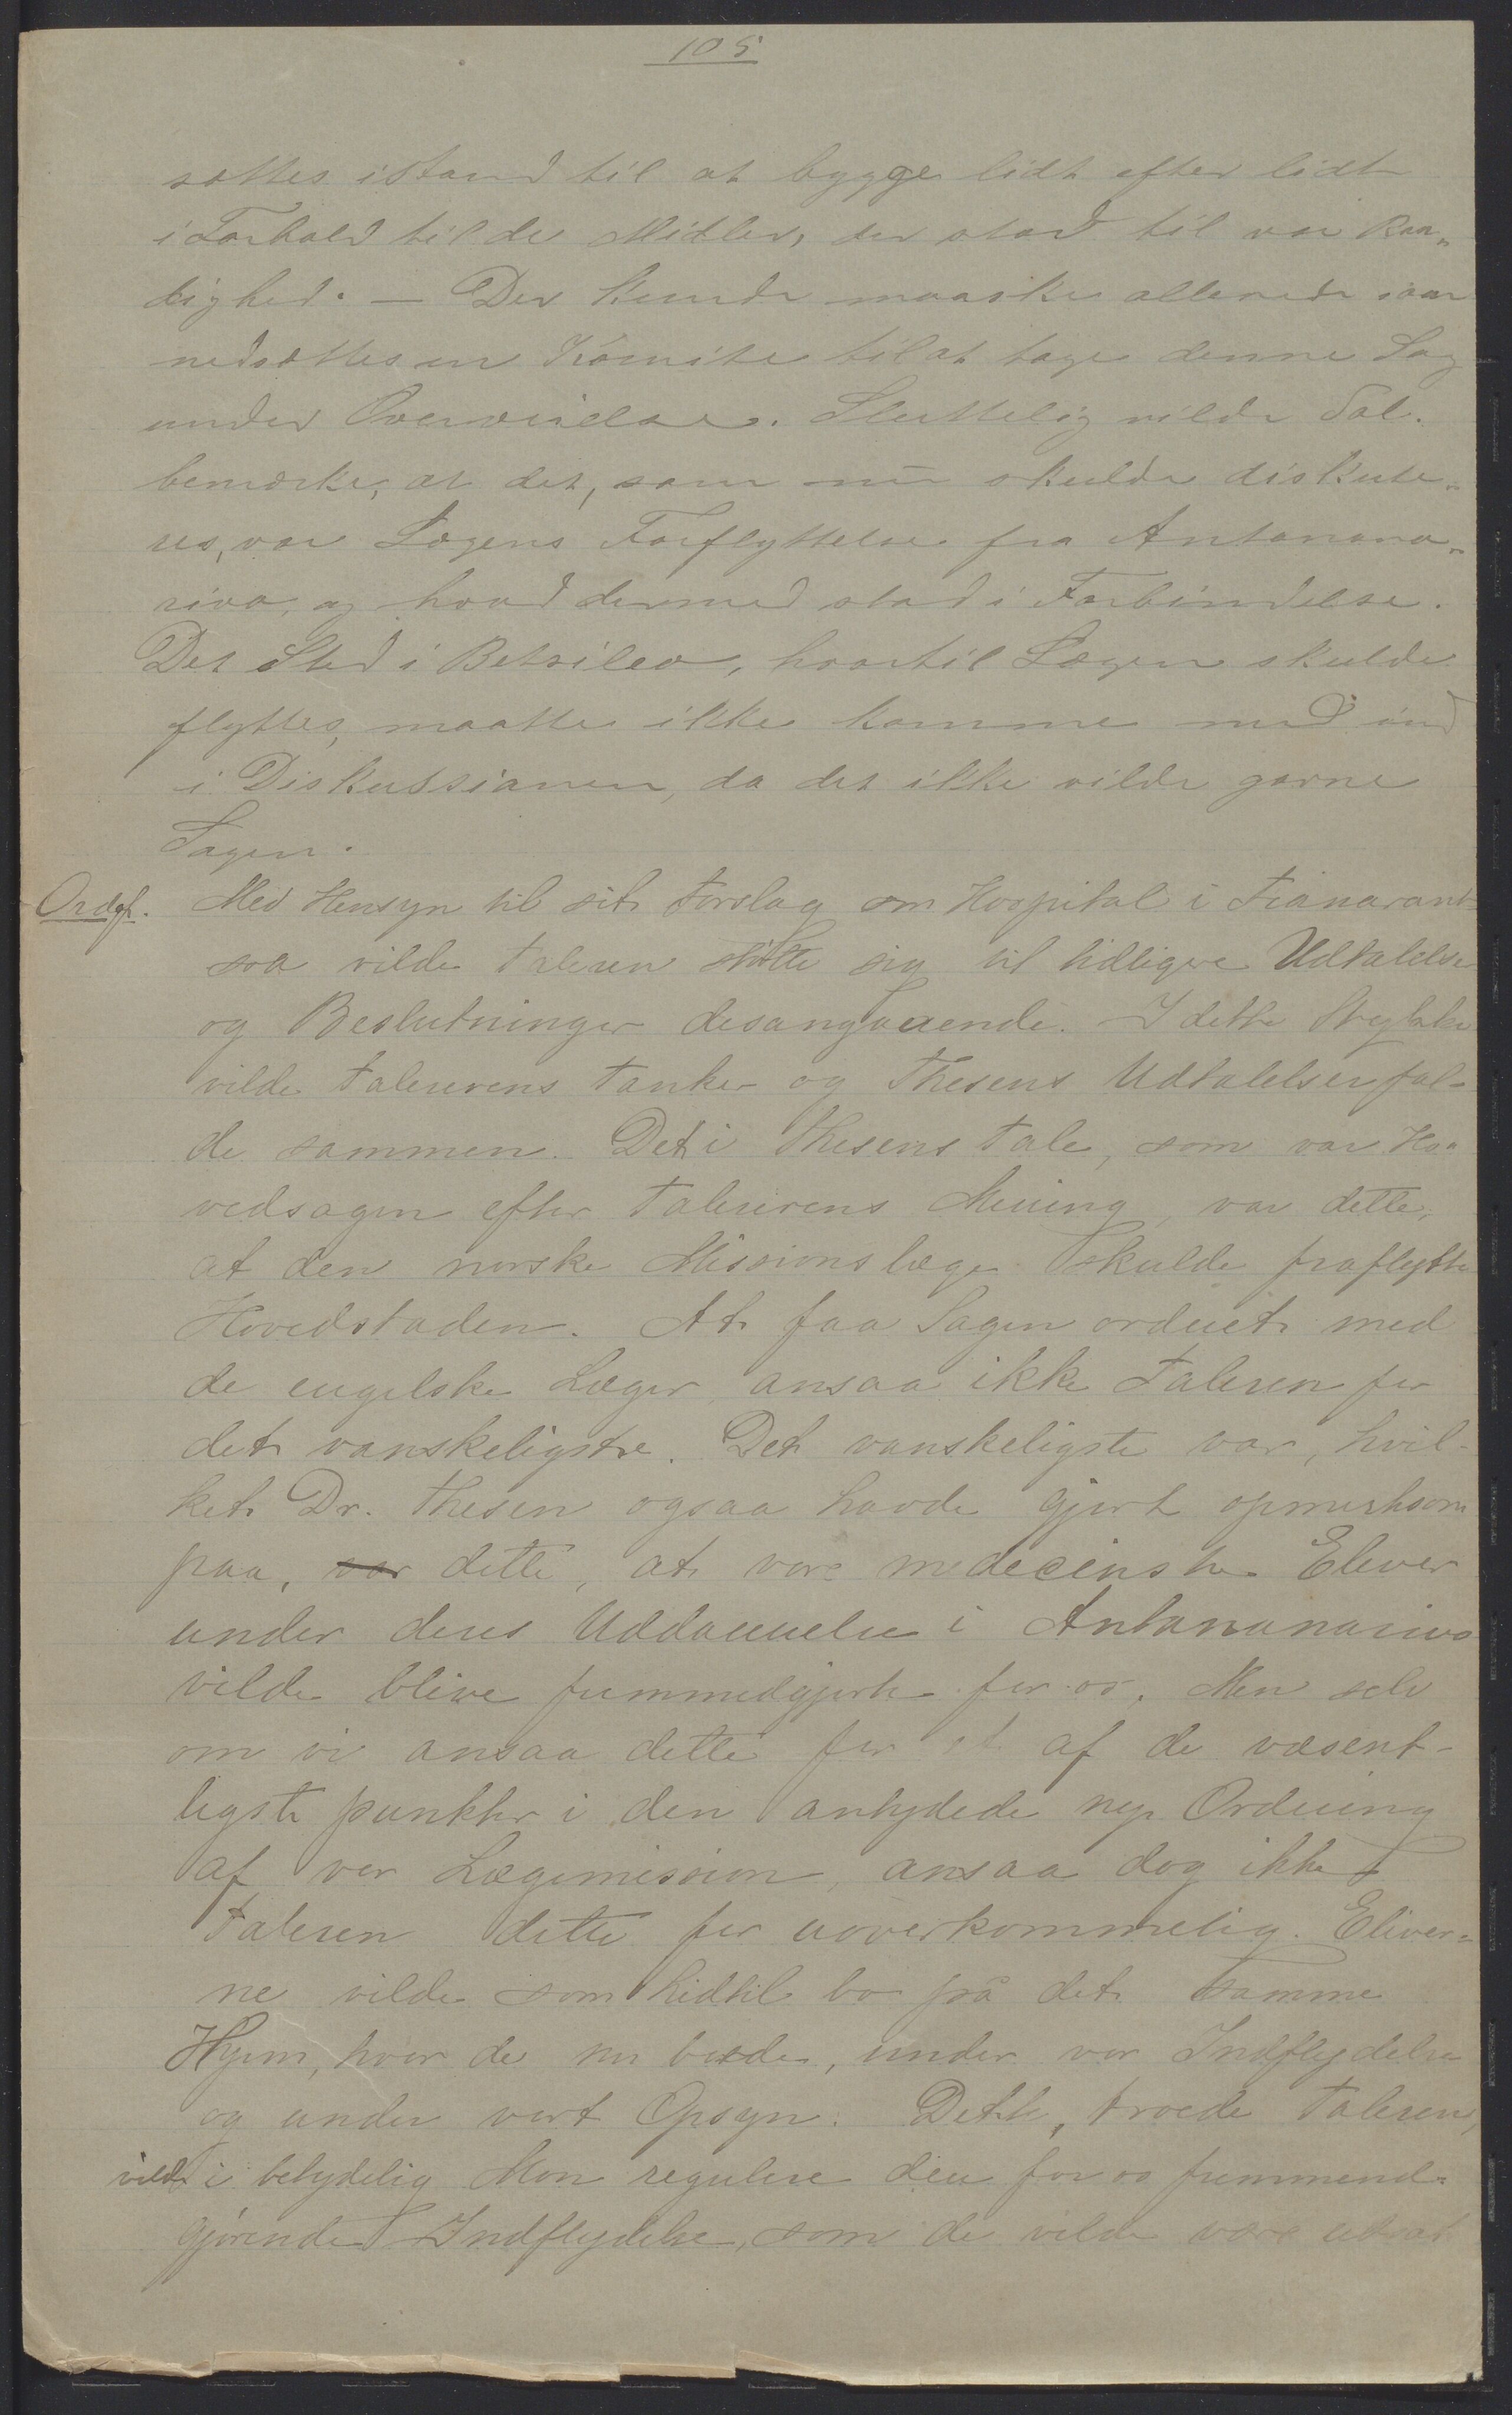 105
sættes istand til at bygge lidt efter lidt
i Forhold til de Midler, der stod til vor Raa„
dighed. — Der kunde maaske allerede saa
nedsættes en Komite til at tage denne Sag
under Overveielse. Sluttelig vilde Tal.
bemærke, at det, som nu skulde diskute„
res, var Lægens Forflyttelse fra Antanana„
rivo, og hvad dermed stod i Forbindelse.
Det Sted i Betsileo, hvortil Lægen skulde
flyttes, maatte ikke komme med ind
i Diskussionen, da det ikke vilde gavne
Sagen.
Ordf. Med Hensyn til sit Forslag om Hospital i Fianarant-
soa vilde Taleren støtte sig til tidligere Udtalelser
og Beslutninger desangaaende. I dette Stykke
vilde Talerens Tanker og Thesens Udtalelser fal-
de sammen. Det i Thesens Tale, som var Ho„
vedsagen efter Talerens Mening, var dette,
at den norske Missionslæge skulde fraflytte
Hovedstaden. At faa Sagen ordnet med
de engelske Læger, ansaa ikke Taleren for
det vanskeligste. Det vanskeligste var, hvil-
ket Dr. Thesen ogsaa havde gjort opmerksom
paa, var dette, at vore medecinske Elever
under deres Uddannelse i Antananarivo
vilde blive fremmedgjorte for os. Men selv
om vi ansaa dette for et af de væsent-
ligste punkter i den antydede nye Ordning
af vor Lægemission, ansaa dog ikke
Taleren dette for uoverkommelig. Elever=
ne vilde som hidtil bo på det samme
Hjem, hvor de nu boede, under vor Indflydelse
og under vort Opsyn. Dette, troede Taleren,
vilde i betydelig Mon regulere den for os fremmend=
gjørende Indflydelse, som de vilde være udsat